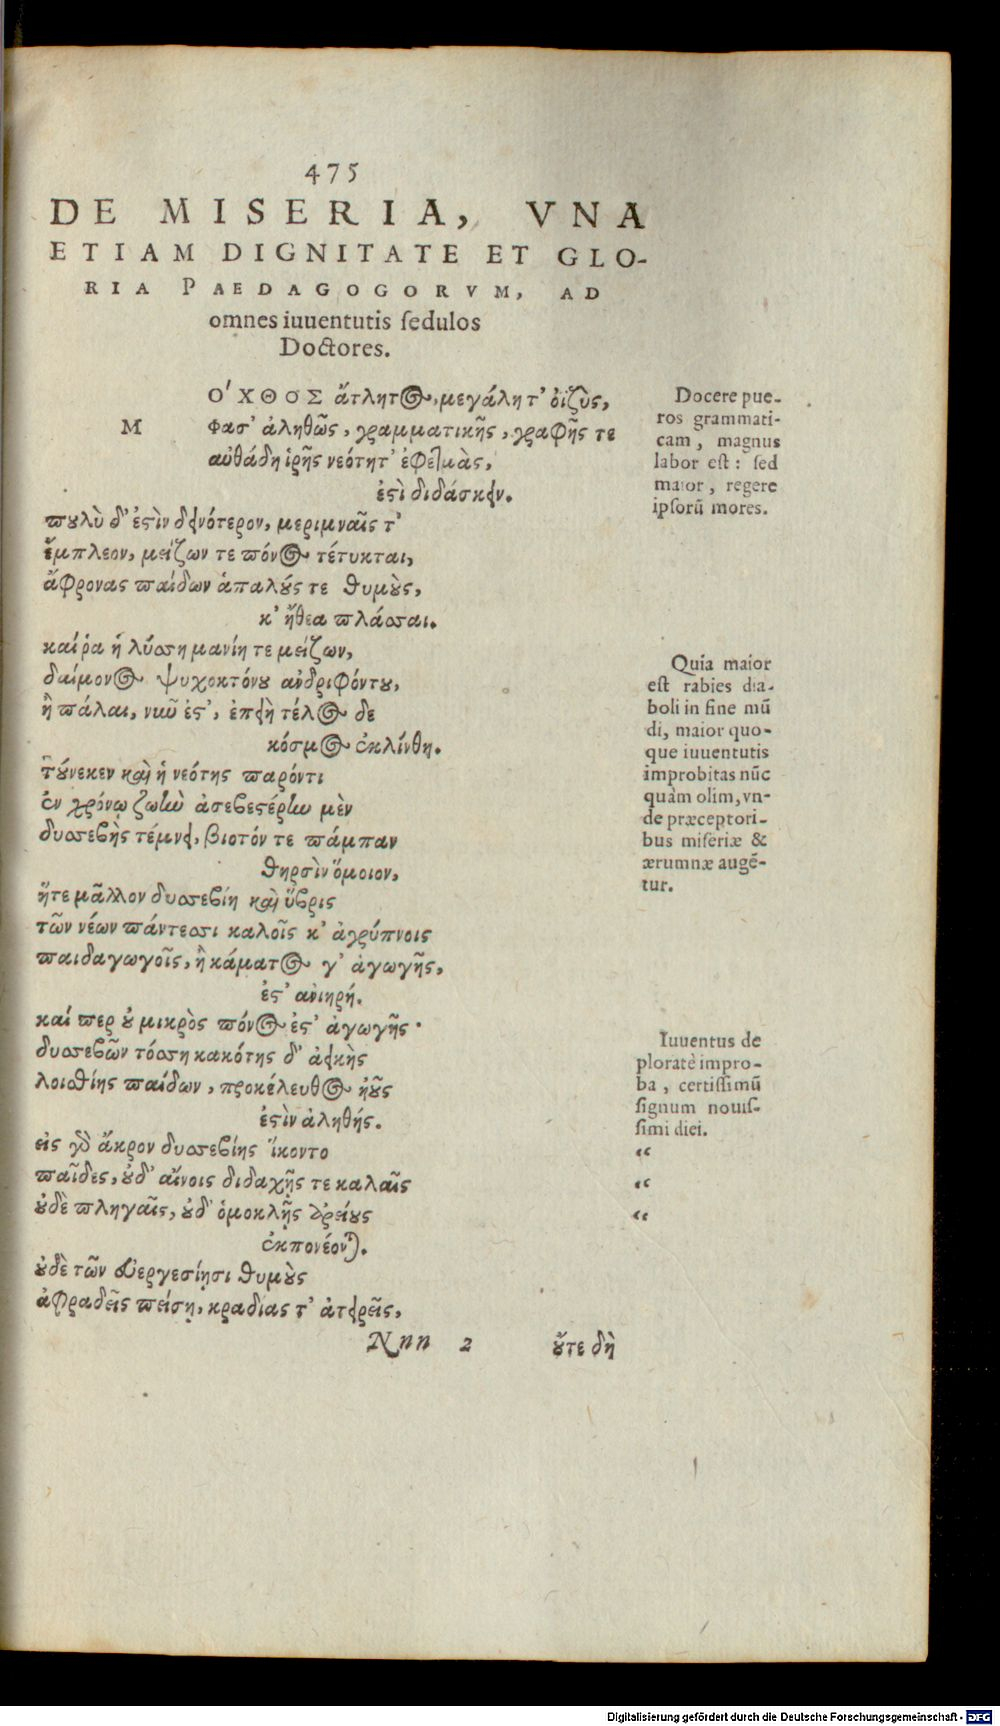 475
DE MISERIA, VNA
ETIAM DIGNITATE ET GLO-
RIA PAEDAGOGORVM, AD
omnes iuuentutis ſedulos
Doctores.
ΜΟ'ΧΘΟΣ ἄτλητος, μεγάλη τ' ὀιζὺς,
Φασ' ἀληθῶς, γραμματικῆς, γραφῆς τε
αὐθάδη ἱρῆς νεότητ' ἐφετμὰς,
ἐστὶ διδάσκειν.
πουλὺ δ' ἐστὶν δεινότερον, μεριμναῖς τ'
ἔμπλεον, μείζων τε πόνος τέτυκται,
ἄφρονας παίδων ἁπαλούς τε θυμοὺς,
κ' ἤθεα πλάσσαι.
καί ῥα ἡ λύσση μανίη τε μείζων,
δαίμονος ψυχοκτόνου ἀνδριφόντου,
ἢ πάλαι, νυῦ ἐστ', ἐπειὴ τέλος δε
κόσμος ἐκλίνθη.
Τούνεκεν καὶ ἡ νεότης παρόντι
ἐν χρόνῳ ζωὴν ἀσεβεστέρην μὲν
δυσσεβὴς τέμνει, βιοτόν τε πάμπαν
θηρσὶν ὅμοιον,
ἥτε μᾶλλον δυσσεβίη καὶ ὕβρις
τῶν νέων πάντεσσι καλοῖς κ' ἀγρύπνοις
παιδαγωγοῖς, ἢ κάματος γ' ἀγωγῆς,
ἐστ' ἀνιηρή.
καί περ οὐ μικρὸς πόνος ἐστ' ἀγωγῆς·
δυσσεβῶν τόσση κακότης δ' ἀεικὴς
λοισθίης παίδων, προκέλευθος ἠοῦς
ἐστὶν ἀληθής.
εἰς γὰρ ἄκρον δυσσεβίης ἵκοντο
παῖδες, οὐδ' αἴνοις διδαχῇς τε καλαῖς
οὐδὲ πληγαῖς, οὐδ' ὁμοκλῇς εὐρείους
ἐκπονέονται.
οὐδὲ τῶν εὐεργεσίῃσι θυμοὺς
ἀφραδεῖς πείσῃ, κραδίας τ' ἀτειρεῖς,
Nnn 2 οὔτε δὴ
Docere pue-
ros grammati-
cam, magnus
labor eſt: ſed
maior, regere
ipſorũ mores.
Quia maior
eſt rabies dia-
boli in fine mũ
di, maior quo-
que iuuentutis
improbitas nũc
quàm olim, vn-
de præceptori-
bus miſeriæ &
ærumnæ augẽ-
tur.
Iuuentus de
ploratè impro-
ba, certiſſimũ
ſignum nouiſ-
ſimi diei.
“
“
“
Digitalisierung gefördert durch die Deutsche Forschungsgemeinschaft - DFG